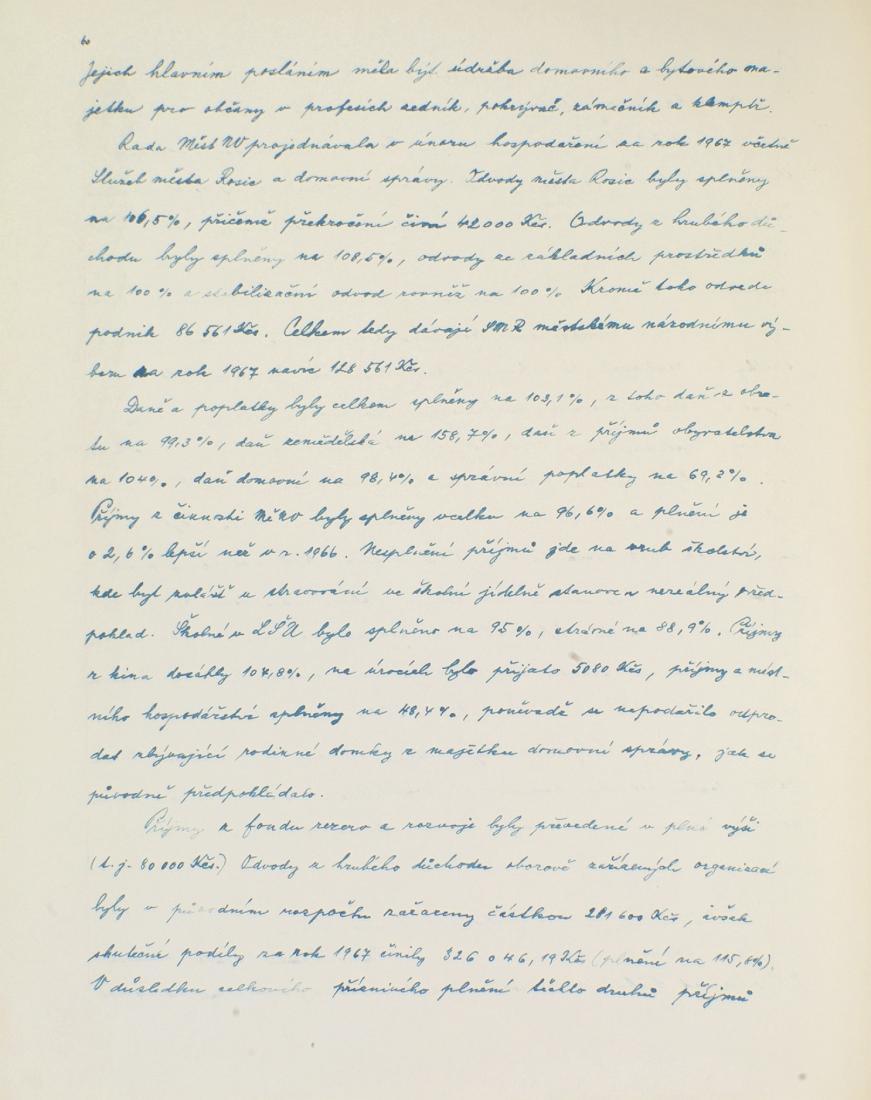 60
Jejich hlavním posláním měla být údržba domovního a bytového ma-
jetku pro občany v profesích zedník, pokrývač, zámečník a klempíř.
Rada Měst NV projednávala v únoru hospodaření za rok 1967 včetně
Služeb města Rosic a domovní správy. Odvody města Rosic byly splněny
na 106,5%, přičemž překročení činí 42000 Kčs. Odvody z hrubého dů-
chodu byly splněny na 108,5%, odvody ze základních prostředků
na 100% a stabilizační odvod rovněž na 100% Kromě toho odvede
podnik 86 561 Kčs. Celkem tedy dávají SMR městskému národnímu vý-
boru za rok 1967 navíc 128 561 Kčs.
Daně a poplatky byly celkem splněny na 103,1%, z toho daň z obra-
tu na 99,3%, daň zemědělská na 158,7%, daň z příjmů obyvatelstva
na 104%, daň domovní na 98,4% a správní poplatky na 69,2%.
Příjmy z činnosti MěNV byly splněny vcelku na 96,6% a plnění je
o 2,6% lepší než v r. 1966. Nesplnění příjmů jde na vrub školství,
kde byl zvlášť u stravování ve školní jídelně stanoven nereálný před-
poklad. Školné v LŠU bylo splněno na 95%, stravné na 88,9%. Příjmy
z kina dosáhly 104,8%, na úrocích bylo přijato 5080 Kčs, příjmy z míst-
ního hospodářství splněny na 48,4%, poněvadž se nepodařilo odpro-
dat zbývající rodinné domky z majetku domovní správy, jak se
původně předpokládalo.
Příjmy z fondu rezerv a rozvoje byly převedené v plné výši
(t.j. 80 000 Kčs.) Odvody z hrubého důchodu oborově zařízených organizací
byly v původním rozpočtu zařazeny částkou 281 600 Kčs, avšak
skutečné podíly za rok 1967 činily 326 046,19 Kčs (plnění na 115,8%).
V důsledku celkového příznivého plnění těchto druhů příjmů